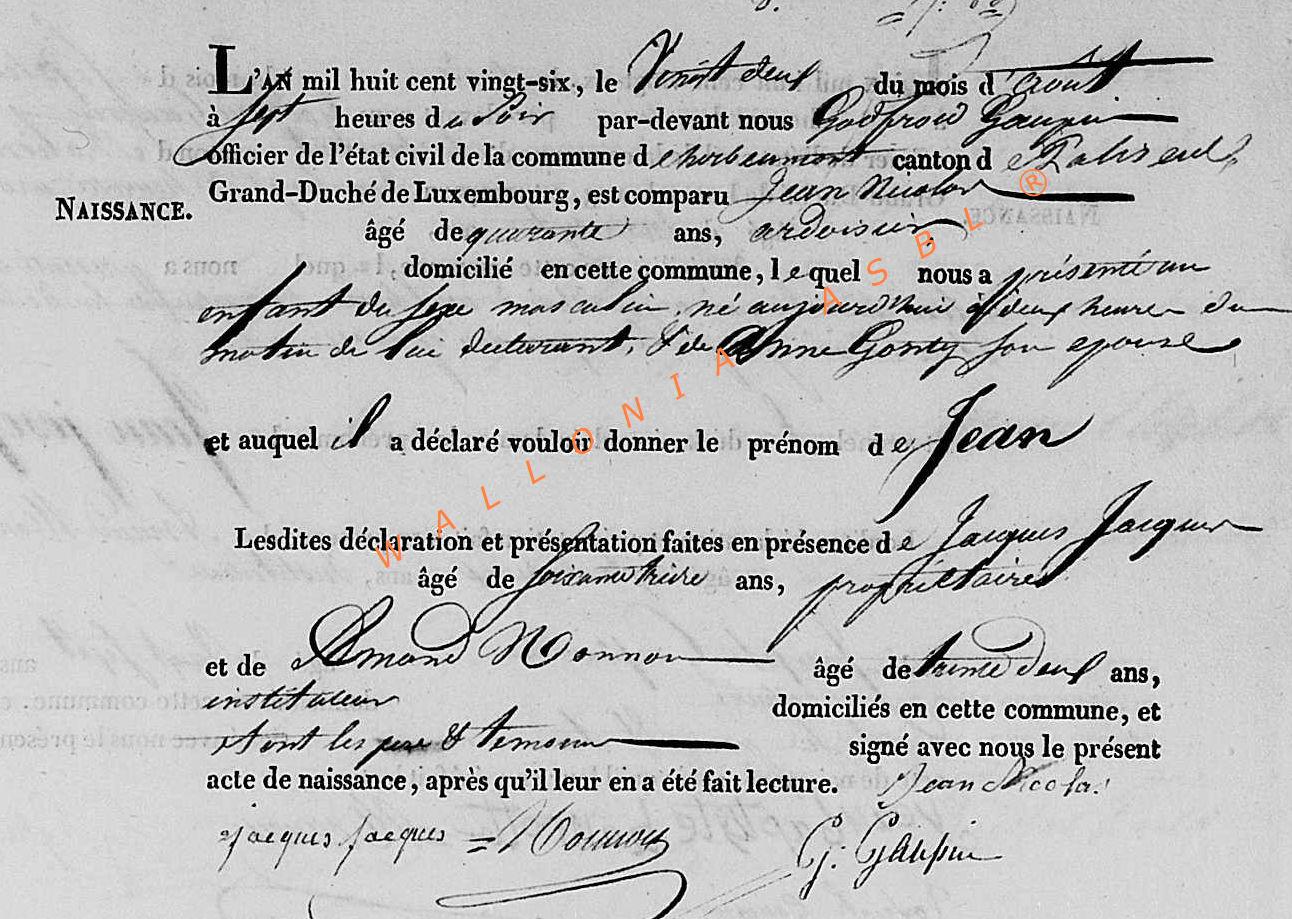 L'AN mil huit cent vingt-six, le Vingt deux du mois d'août
à sept heures du Soir par-devant nous Godfroid Gaupin
officier de l'état civil de la commune d'herbeumont canton de Paliseul
Grand-Duché de Luxembourg, est comparu Jean Nicolas
NAISSANCE.
âgé de quarante ans, ardoisier
domicilié en cette commune, lequel nous a présenté un
enfant du sexe masculin, né aujourd'hui à deux heures du
matin de lui déclarant, & de Anne Gonty son epouse
et auquel il a déclaré vouloir donner le prénom de Jean
Lesdites déclaration et présentation faites en présence de Jacques Jacques
âgé de soixante treize ans, propriétaire
et de Amand Nonnon âgé de trente deux ans,
instituteur
domiciliés en cette commune, et
et ont les pere & temoins signé avec nous le présent
acte de naissance, après qu'il leur en a été fait lecture. Jean Nicolas
Jacques Jacques = Nonnon G: Gaupin
WALLONIA ASBL ®